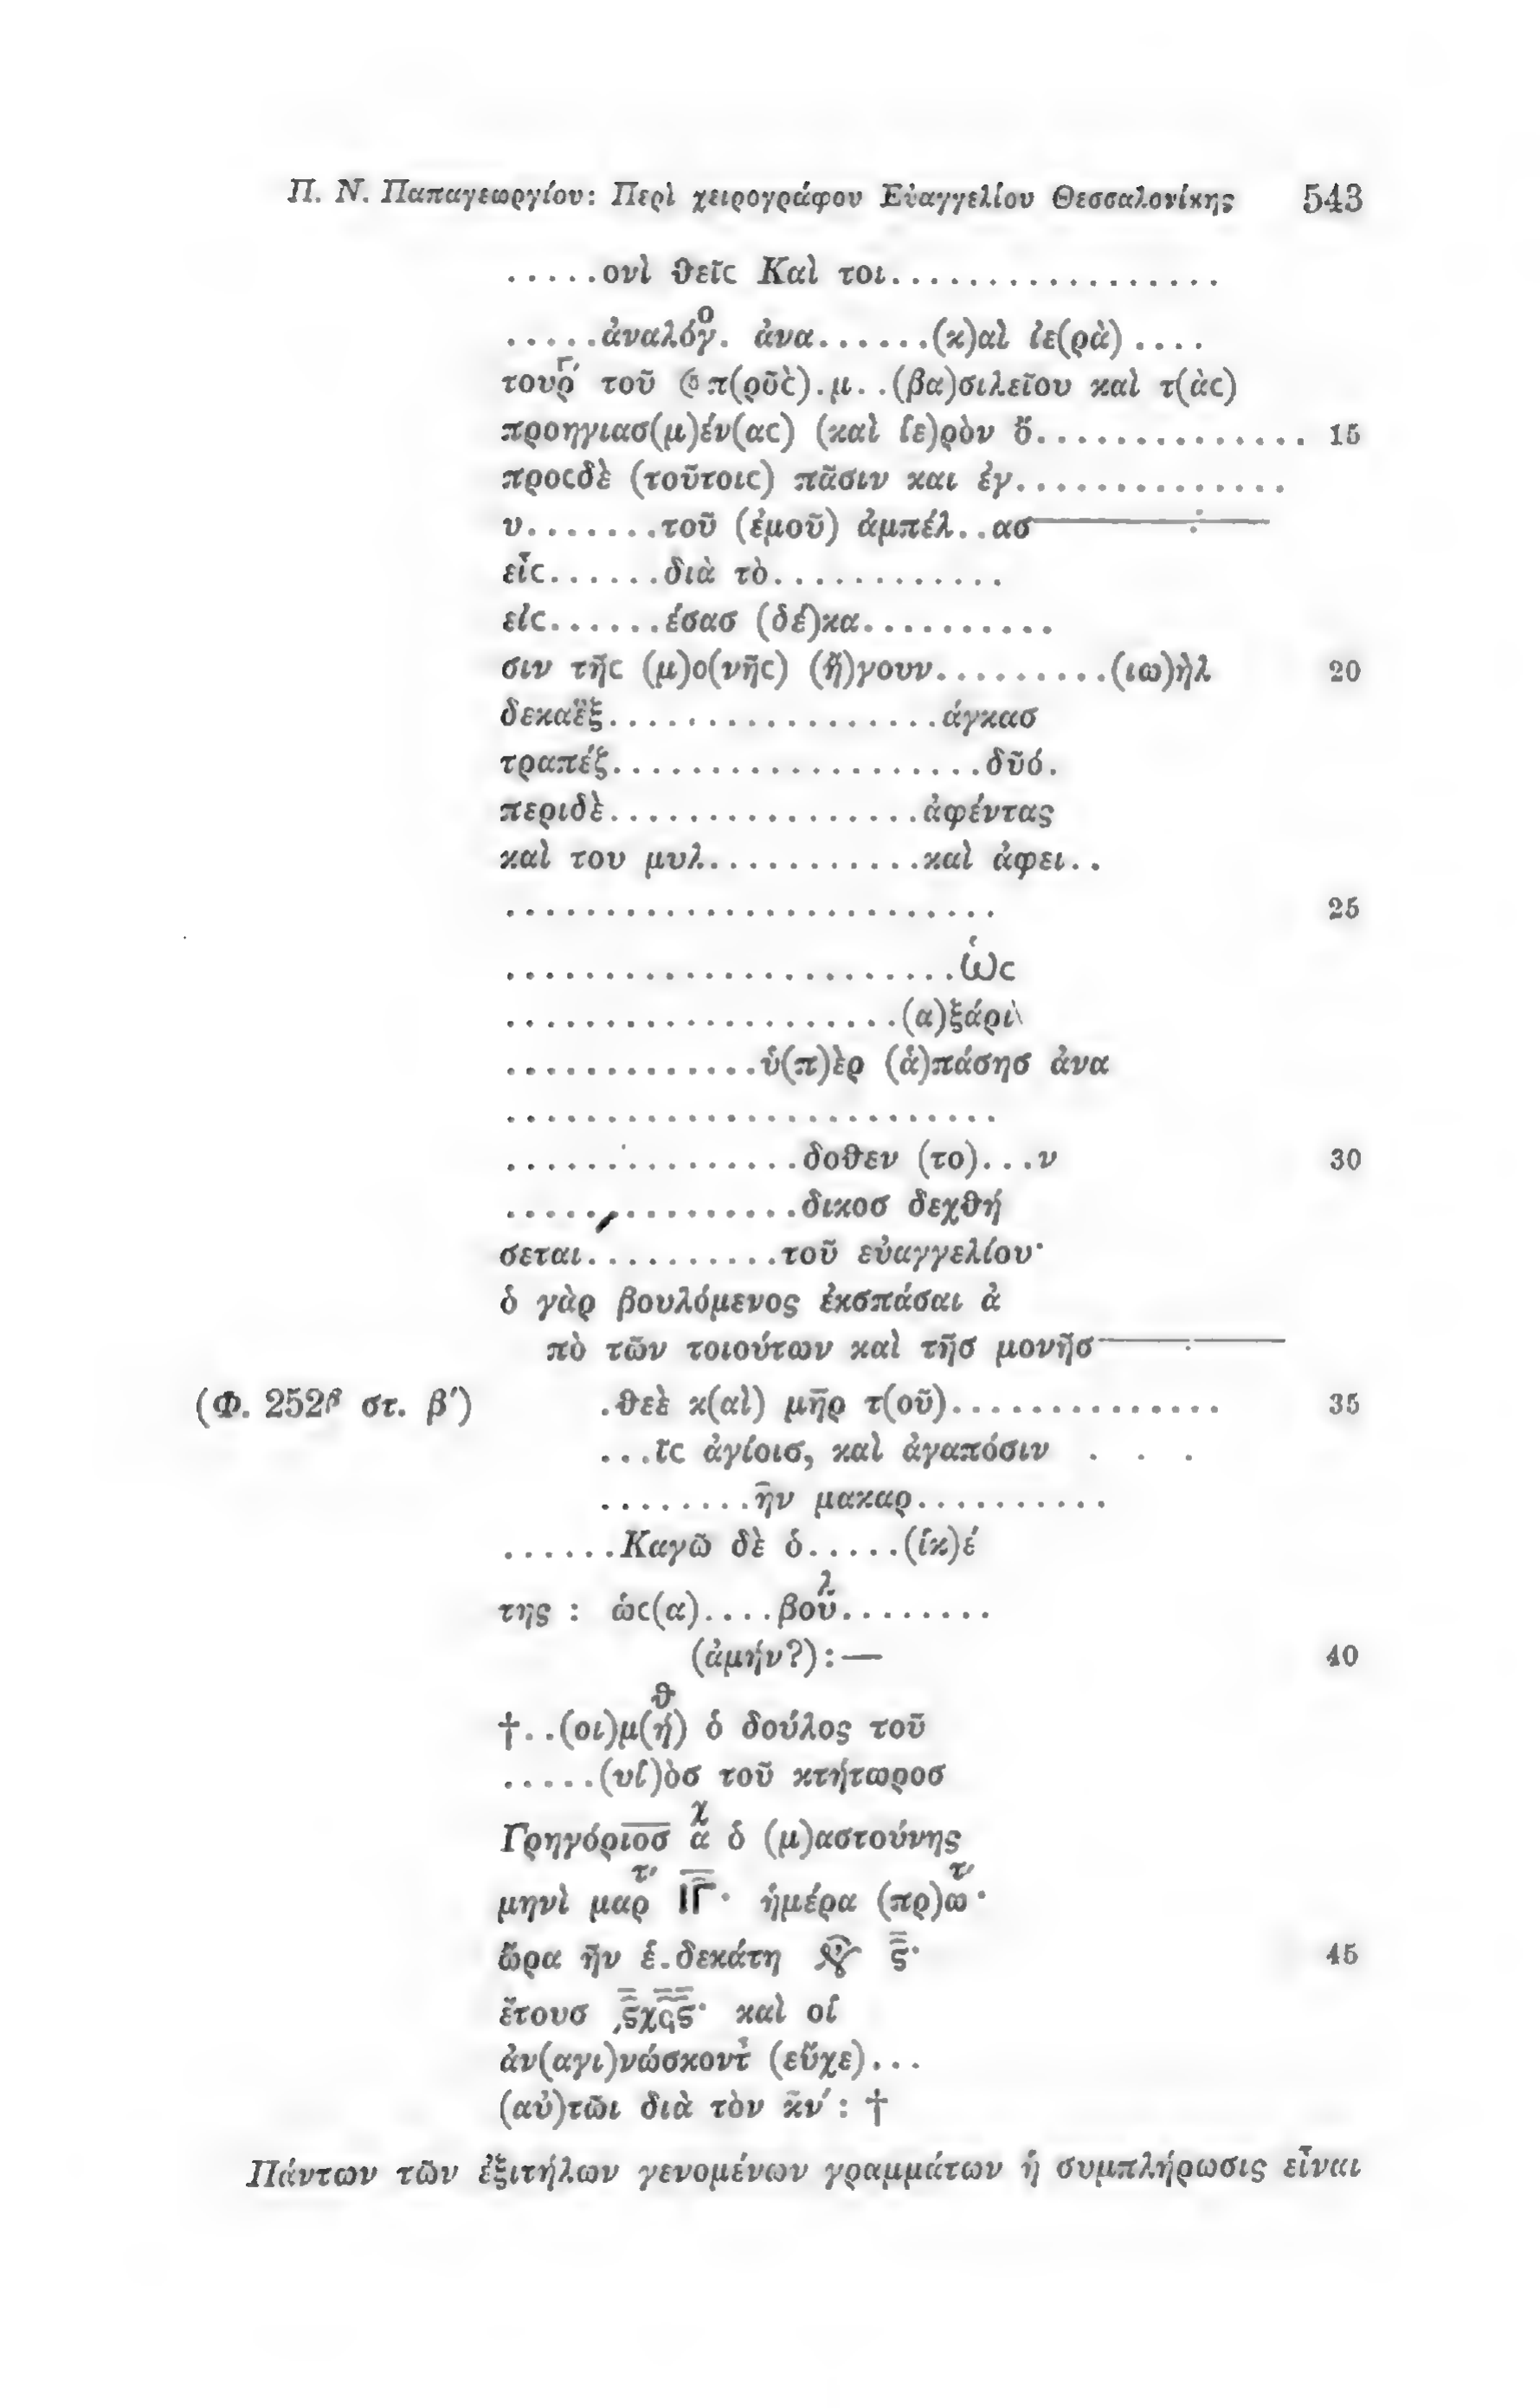 Π. Ν. Παπαγεωργίου: Περὶ χειρογράφου Εὐαγγελίου Θεσσαλονίκης 543
.....ονὶ θεῖϲ Καὶ τοι.................
.....ἀναλόγο. ἀνα......(κ)αὶ ἱε(ρὰ)....
τουρΓ′ τοῦ π(ροὺϲ).μ..(βα)σιλεῖου καὶ τ(ὰϲ)
προηγιασ(μ)έν(αϲ) (καὶ ἱε)ρὸν ὅ.............. 15
προϲδὲ (τοῦτοιϲ) πᾶσιν και ἐγ..............
υ.......τοῦ (ἐμοῦ) ἀμπέλ..ασ
εἶϲ......διὰ τὸ............
εἰϲ......έσασ (δέ)κα..........
σιν τῆϲ (μ)ο(νῆϲ) (ἤ)γουν.........(ιω)ὴλ 20
δεκαὲξ.................άγκασ
τραπέζ...................δῦό.
περιδὲ................ἀφέντας
καὶ του μυλ...........καὶ ἀφει..
......................... 25
.......................ὡϲ
....................(α)ξάρι\
.............ὑ(π)ὲρ (ἁ)πάσησ ἀνα
.........................
...............δοθεν (το)...ν 30
...............δικοσ δεχθή
σεται..........τοῦ εὐαγγελίου·
ὁ γὰρ βουλόμενος ἐκσπάσαι ἀ
πὸ τῶν τοιούτων καὶ τῆσ μονῆσ
(Φ. 252β στ. β′) .θεὲ κ(αὶ) μῆρ τ(οῦ).............. 35
...ῖϲ ἁγίοισ, καὶ ἀγαπόσιν . . .
........ῆν μακαρ..........
......Καγῶ δὲ ὁ.....(ἱκ)έ
της : ὡϲ(α)....βουλ........
(ἀμήν?):—
40
†..(οι)μ(ή)θ ὁ δούλος τοῦ
.....(υἱ)ὸσ τοῦ κτήτωροσ
Γρηγόριοσ αχ ὁ (μ)αστούνης
μηνὶ μαρτ′ ΙΓ· ἡμέρα (πρ)ωτ′·
ὥρα ἦν ἑ.δεκάτη ϛ· 45
ἔτουσ ͵ϛχϟϛ· καὶ οἱ
ἀν(αγι)νώσκοντ (εὔχε)...
(αὐ)τῶι διὰ τὸν κν′: †
Πάντων τῶν ἐξιτήλων γενομένων γραμμάτων ἡ συμπλήρωσις εἶναι